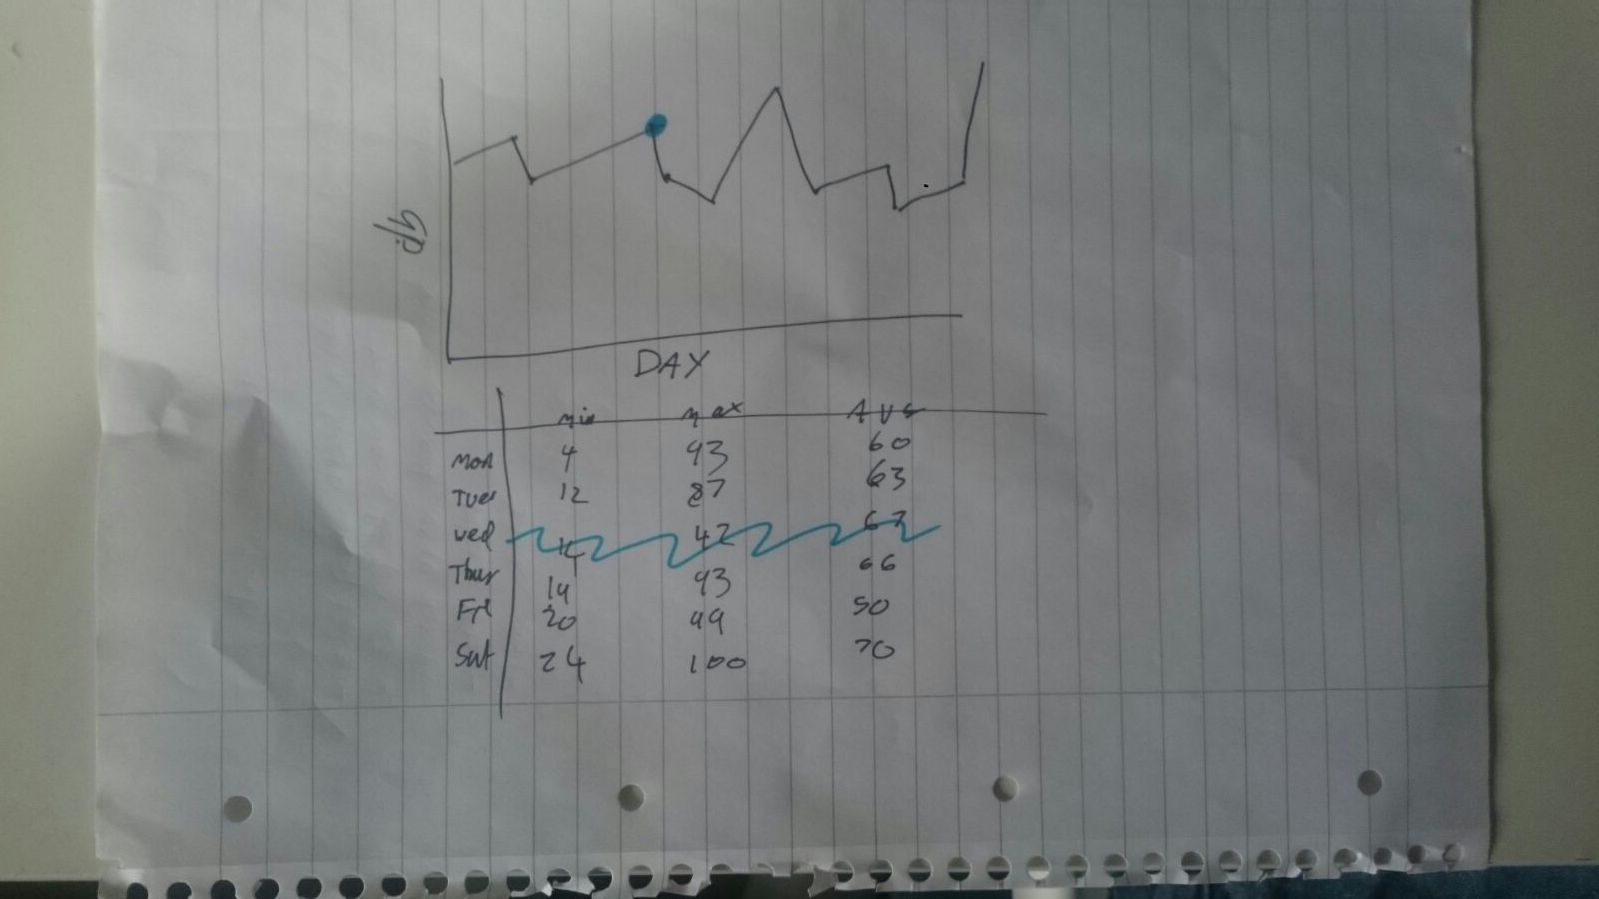 db
DAY
min max AVG
Mon 4 93 60
Tues 12 87 63
Wed 14 42 67
Thur 14 93 66
Fri 20 99 50
Sat 24 100 70